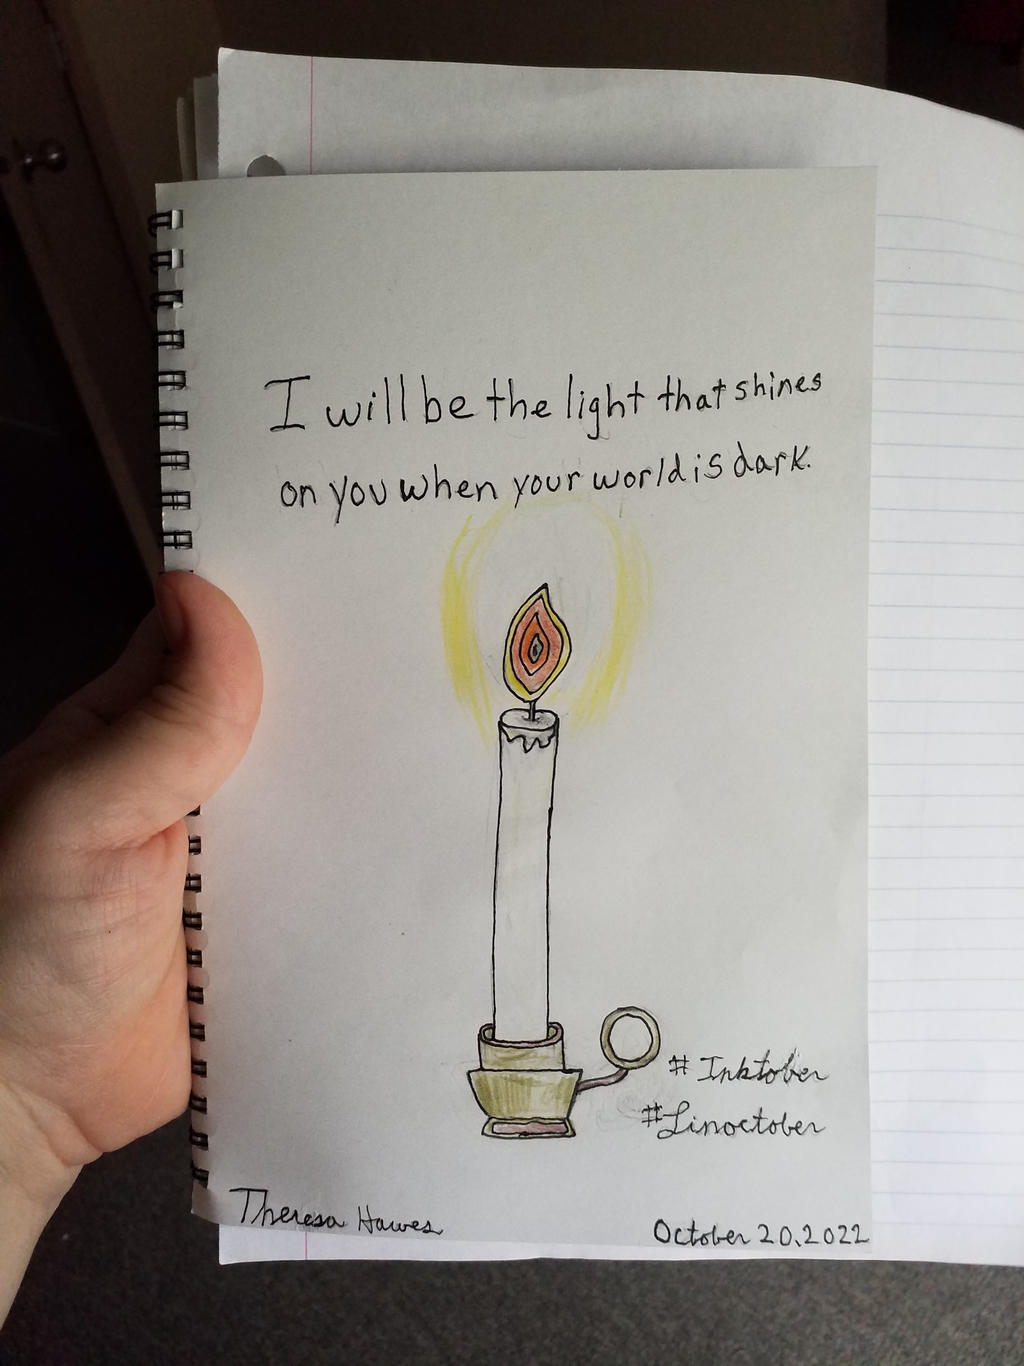 I will be the light that shines
on you when your world is dark.
# Inktober
#Linoctober
Theresa Hawes
October 20, 2022